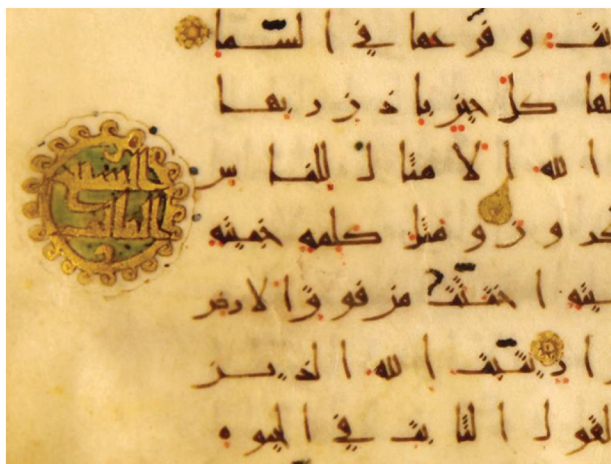 بت وفرعها في السما
لها كل حين باذن ربها
الله الامثال للناس
كرون ومثل كلمة خبيثة
بيثة اجتثت من فوق الارض
ار يثبت الله الذين
لقول الثابت في الحيوة